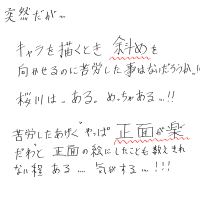 突然だが…
キャラを描くとき 斜めを
向かせるのに苦労した事はないだろうか…
桜川は…ある。めっちゃある…!!
苦労したあげく"やっぱ 正面が楽
だわ"と 正面の絵にしたことも数えきれ
ない程 ある…. 気がする…!!!